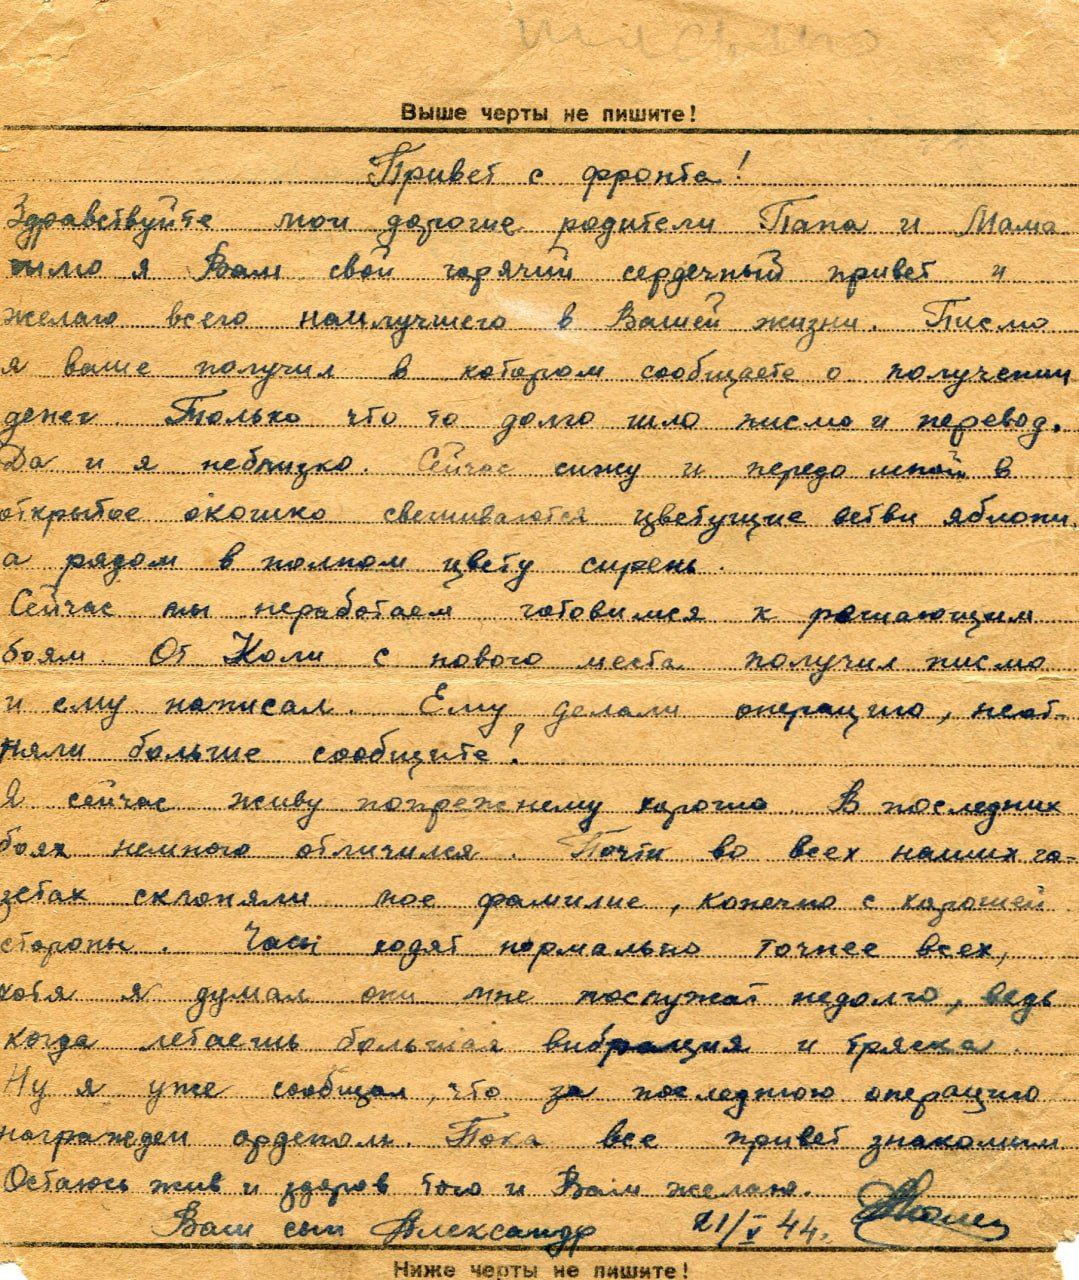 письмо
Выше черты не пишите!
Привет с фронта!
Здравствуйте мои дорогие родители Папа и Мама
шлю я Вам свой горячий сердечный привет и
желаю всего наилучшего в Вашей жизни. Писмо
я ваше получил в котором сообщаете о получении
денег. Только что то долго шло писмо и перевод.
Да и я неблизко. Сейчас сижу и передо мной в
открытое окошко свешиваются цветущие ветви яблони,
а рядом в полном цвету сирень.
Сейчас мы неработаем готовимся к решающим
боям. От Коли с нового места получил писмо
и ему написал. Ему делали операцию, неот-
няли больше сообщите?
Я сейчас живу попрежнему харошо. В последних
боях немного отличился. Почти во всех наших га-
зетах склоняли мое фамилие, конечно с харошей
стороны. Часы ходят нормально точнее всех,
хотя я думал они мне послужат недолго, ведь
когда летаешь большая вибрация и тряска.
Ну я уже сообщал, что за последнюю операцию
награжден орденом. Пока все привет знакомым
Остаюсь жив и здоров того и Вам желаю.
Ваш сын Александр 21/V 44.
Ниже черты не пишите!